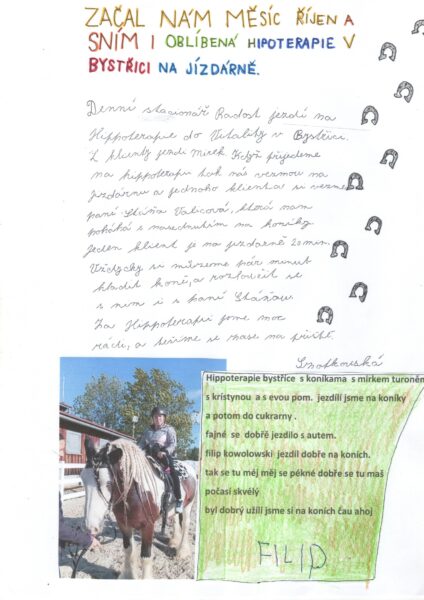 ZAČAL NÁM MĚSÍC ŘÍJEN A
SNÍM I OBLÍBENÁ HIPOTERAPIE V
BYSTŘICI NA JÍZDÁRNĚ.
Denní stacionář Radost jezdí na
Hippoterapie do Vitality v Bystřici.
Z klienty jezdí Mirek Když přijedeme
na hippoterapii tak nás vezmou na
jízdárnu a jednoho klienta si vezme
paní Stáňa, která nam
pomáhá s nasednutím na koníky
jeden klient je na jízdarně 20 min.
Vždycky si můzeme pár minut
hladit koně, a rozloučit se
s nim i s paní Stáňou.
Za Hippoterapii jsme moc
rádi, a těšíme se zase na příště.
Hippoterapie bystřice s koníkama s mirkem turoněm
s krístynou a s evou pom. jezdílí jsme na koníky
a potom do cukrarny .
fajné se dobřé jezdilo s autem.
filip kowolowski jezdil dobře na koních.
tak se tu méj měj se pékné dobře se tu maš
počasí skvélý
byl dobrý užílí jsme si na koních čau ahoj
FILIP